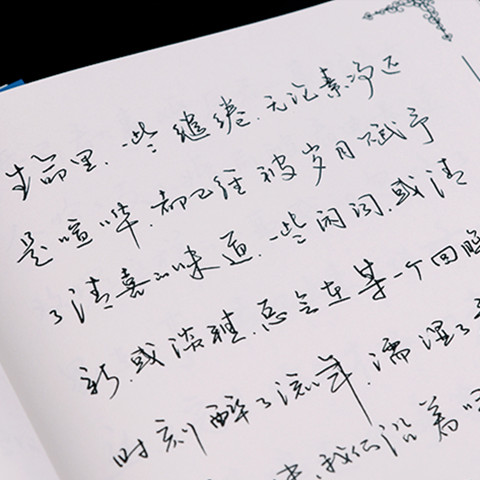 生命里，一些缱绻，无论素净还
是喧哗，都已经被岁月赋予
了清喜的味道，一些闪闪，或清
新，或淡雅，总会在某一个回眸
时刻醉了流年，濡湿了
我们沿着